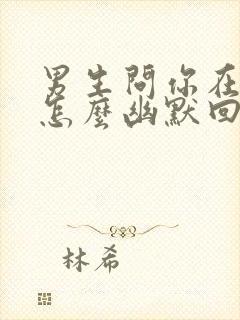 男生問你在
怎麼幽默回
林希